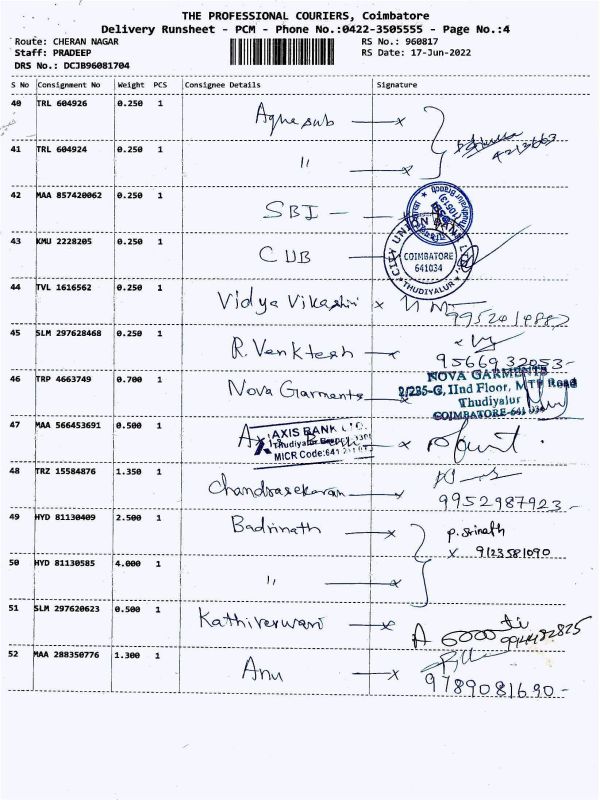 THE PROFESSIONAL COURIERS, Coimbatore
Delivery Runsheet - PCM - Phone No.:0422-3505555 - Page No.:4
Route: CHERAN NAGAR
RS No.: 960817
Staff: PRADEEP
RS Date: 17-Jun-2022
DRS No.: DCJB96081704
S No Consignment No Weight PCS Consignee Details Signature
40 TRL 604926 0.250 1
41 TRL 604924 0.250 1 "
4213663
42 MAA 857420062 0.250 1 SBI
43 KMU 2228205 0.250 1 CUB
COIMBATORE
641034
THUDIYALUR
44 TVL 1616562 0.250 1 Vidya Vikashini x
45 SLM 297628468 0.250 1 R. Venktesh x
9566932053-
46 TRP 4663749 0.700 1 Nova Garments x
NOVA GARMENTS
2/235-G, IInd Floor, MTP Road
Thudiyalur
COIMBATORE-641 034
47 MAA 566453691 0.500 1 x
AXIS BANK LTD.
Thudiyalur
MICR Code:641
48 TRZ 15584876 1.350 1 Chandrasekaran x
9952987923-
49 HYD 81130409 2.500 1 Badrinath x p. srinath
x 9123581090
50 HYD 81130585 4.000 1 " x
51 SLM 297620623 0.500 1 x
52 MAA 288350776 1.300 1 Anu x
9789081690-